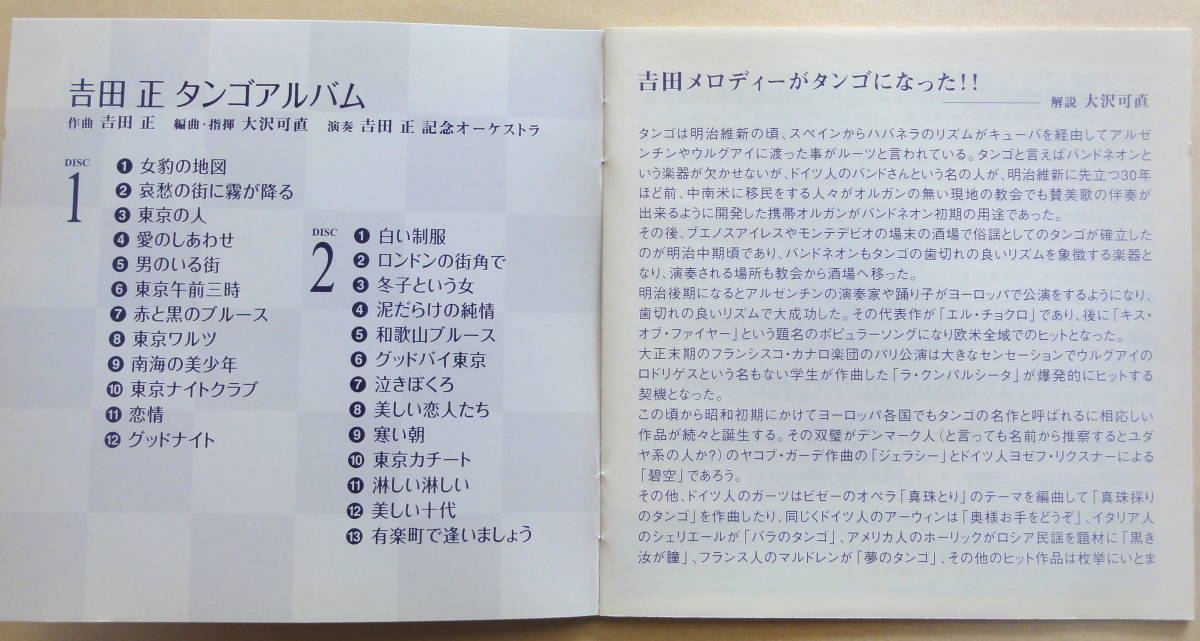 吉田 正 タンゴアルバム
作曲 吉田 正 編曲・指揮 大沢可直 演奏 吉田 正 記念オーケストラ
DISC 1
❶ 女豹の地図
❷ 哀愁の街に霧が降る
❸ 東京の人
❹ 愛のしあわせ
❺ 男のいる街
❻ 東京午前三時
❼ 赤と黒のブルース
❽ 東京ワルツ
❾ 南海の美少年
❿ 東京ナイトクラブ
⓫ 恋情
⓬ グッドナイト
DISC 2
❶ 白い制服
❷ ロンドンの街角で
❸ 冬子という女
❹ 泥だらけの純情
❺ 和歌山ブルース
❻ グッドバイ東京
❼ 泣きぼくろ
❽ 美しい恋人たち
❾ 寒い朝
❿ 東京カチート
⓫ 淋しい淋しい
⓬ 美しい十代
⓭ 有楽町で逢いましょう
吉田メロディーがタンゴになった!!
解説 大沢可直
タンゴは明治維新の頃、スペインからハバネラのリズムがキューバを経由してアルゼ
ンチンやウルグアイに渡った事がルーツと言われている。タンゴと言えばバンドネオンと
いう楽器が欠かせないが、ドイツ人のバンドさんという名の人が、明治維新に先立つ30年
ほど前、中南米に移民をする人々がオルガンの無い現地の教会でも賛美歌の伴奏が
出来るように開発した携帯オルガンがバンドネオン初期の用途であった。
その後、ブエノスアイレスやモンテデビオの場末の酒場で俗謡としてのタンゴが確立した
のが明治中期頃であり、バンドネオンもタンゴの歯切れの良いリズムを象徴する楽器と
なり、演奏される場所も教会から酒場へ移った。
明治後期になるとアルゼンチンの演奏家や踊り子がヨーロッパで公演をするようになり、
歯切れの良いリズムで大成功した。その代表作が「エル・チョクロ」であり、後に「キス・
オブ・ファイヤー」という題名のポピュラーソングになり欧米全域でのヒットとなった。
大正末期のフランシスコ・カナロ楽団のパリ公演は大きなセンセーションでウルグアイの
ロドリゲスという名もない学生が作曲した「ラ・クンパルシータ」が爆発的にヒットする
契機となった。
この頃から昭和初期にかけてヨーロッパ各国でもタンゴの名作と呼ばれるに相応しい
作品が続々と誕生する。その双璧がデンマーク人（と言っても名前から推察するとユダ
ヤ系の人か？）のヤコブ・ガーデ作曲の「ジェラシー」とドイツ人ヨゼフ・リクスナーによる
「碧空」であろう。
その他、ドイツ人のガーツはビゼーのオペラ「真珠とり」のテーマを編曲して「真珠採り
のタンゴ」を作曲したり、同じくドイツ人のアーウィンは「奥様お手をどうぞ」、イタリア人
のシェリエールが「バラのタンゴ」、アメリカ人のホーリックがロシア民謡を題材に「黒き
汝が瞳」、フランス人のマルドレンが「夢のタンゴ」、その他のヒット作品は枚挙にいとま